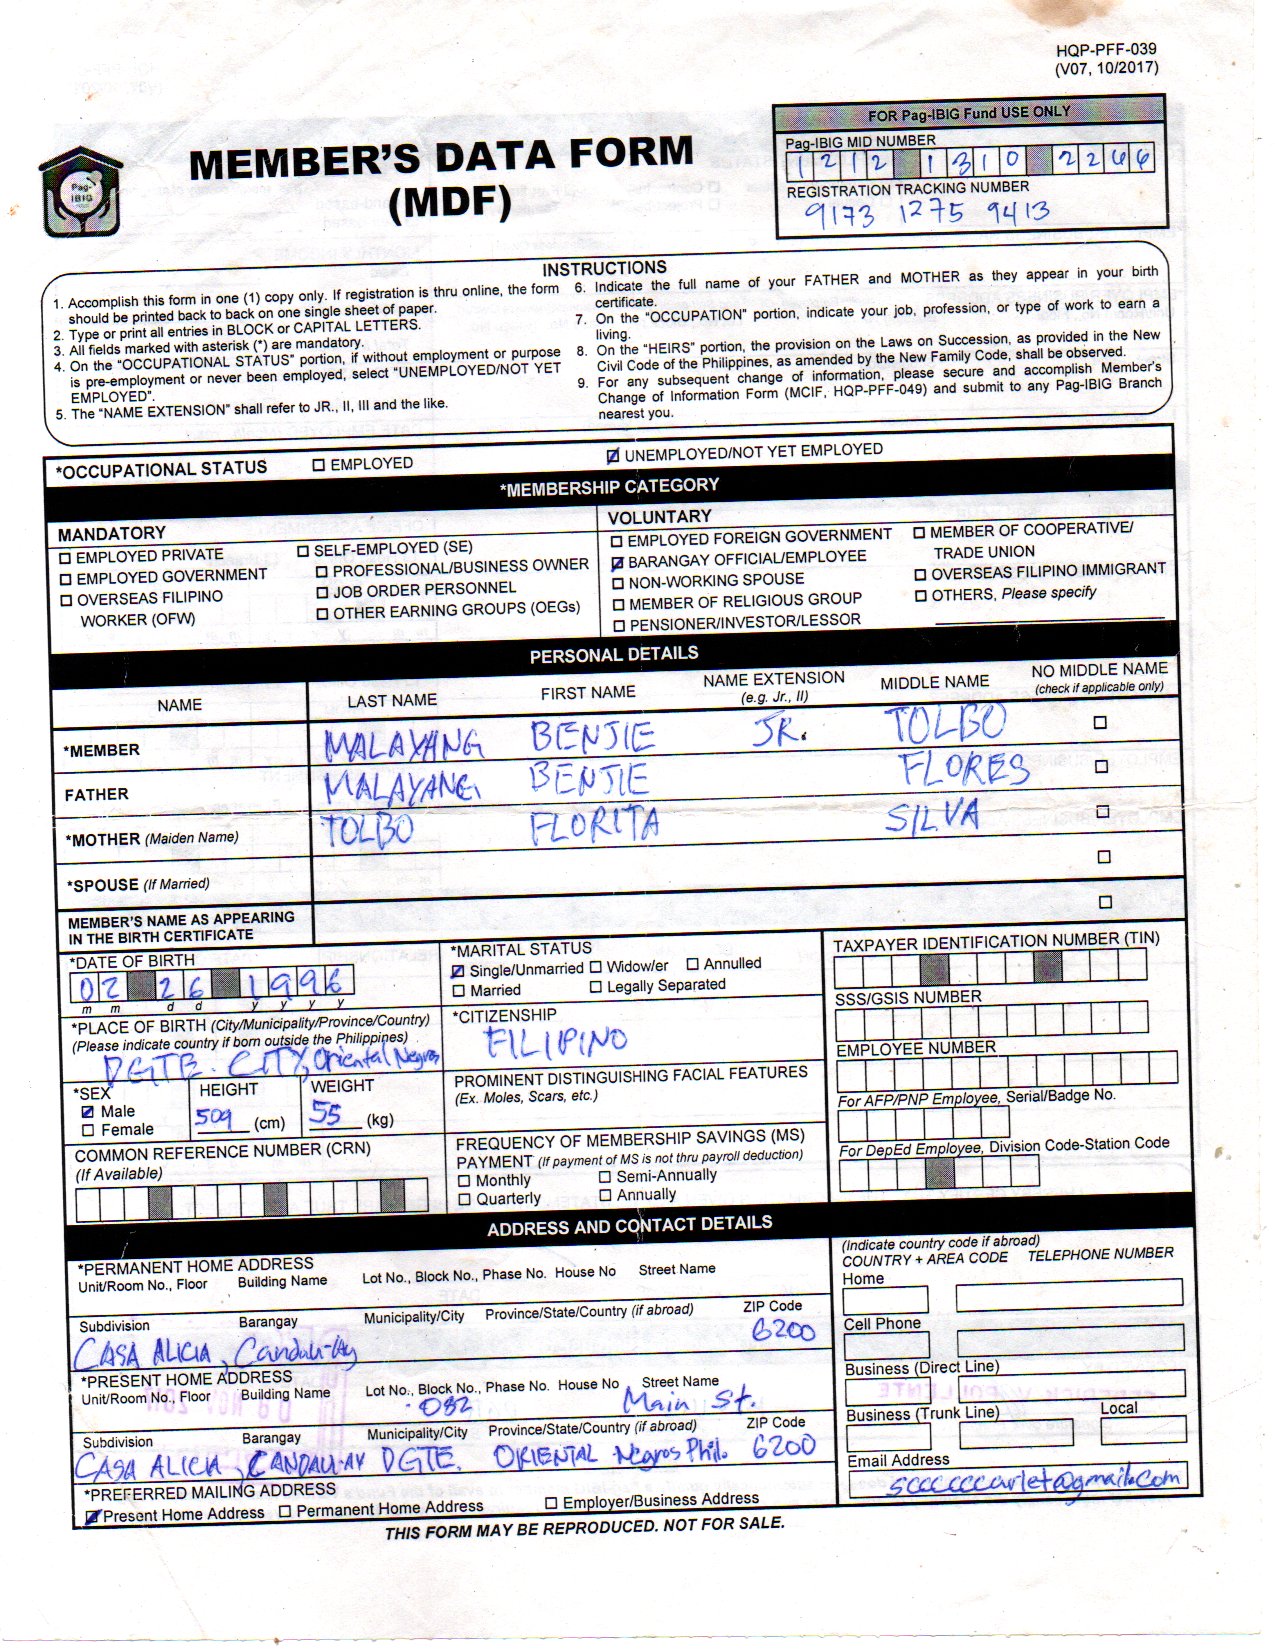 HQP-PFF-039
(V07, 10/2017)
FOR Pag-IBIG Fund USE ONLY
Pag-IBIG MID NUMBER
1212 1310 2266
REGISTRATION TRACKING NUMBER
9173 1275 9413
Pag-IBIG
MEMBER'S DATA FORM
(MDF)
INSTRUCTIONS
1. Accomplish this form in one (1) copy only. If registration is thru online, the form
should be printed back to back on one single sheet of paper.
2. Type or print all entries in BLOCK or CAPITAL LETTERS.
3. All fields marked with asterisk (*) are mandatory.
4. On the "OCCUPATIONAL STATUS" portion, if without employment or purpose
is pre-employment or never been employed, select "UNEMPLOYED/NOT YET
EMPLOYED".
5. The "NAME EXTENSION" shall refer to JR., II, III and the like.
6. Indicate the full name of your FATHER and MOTHER as they appear in your birth
certificate.
7. On the "OCCUPATION" portion, indicate your job, profession, or type of work to earn a
living.
8. On the "HEIRS" portion, the provision on the Laws on Succession, as provided in the New
Civil Code of the Philippines, as amended by the New Family Code, shall be observed.
9. For any subsequent change of information, please secure and accomplish Member's
Change of Information Form (MCIF, HQP-PFF-049) and submit to any Pag-IBIG Branch
nearest you.
*OCCUPATIONAL STATUS EMPLOYED UNEMPLOYED/NOT YET EMPLOYED
*MEMBERSHIP CATEGORY
MANDATORY
EMPLOYED PRIVATE
EMPLOYED GOVERNMENT
OVERSEAS FILIPINO
WORKER (OFW)
SELF-EMPLOYED (SE)
PROFESSIONAL/BUSINESS OWNER
JOB ORDER PERSONNEL
OTHER EARNING GROUPS (OEGs)
VOLUNTARY
EMPLOYED FOREIGN GOVERNMENT
BARANGAY OFFICIAL/EMPLOYEE
NON-WORKING SPOUSE
MEMBER OF RELIGIOUS GROUP
PENSIONER/INVESTOR/LESSOR
MEMBER OF COOPERATIVE/
TRADE UNION
OVERSEAS FILIPINO IMMIGRANT
OTHERS, Please specify
PERSONAL DETAILS
NAME LAST NAME FIRST NAME NAME EXTENSION (e.g. Jr., II) MIDDLE NAME NO MIDDLE NAME (check if applicable only)
*MEMBER MALAYANG BENJIE JR. TOLBO
FATHER MALAYANG BENJIE FLORES
*MOTHER (Maiden Name) TOLBO FLORITA SILVA
*SPOUSE (If Married)
MEMBER'S NAME AS APPEARING
IN THE BIRTH CERTIFICATE
*DATE OF BIRTH
02 26 1996
m m d d y y y y
*PLACE OF BIRTH (City/Municipality/Province/Country)
(Please indicate country if born outside the Philippines)
DGTE. CITY, Oriental Negros
*SEX
Male
Female
HEIGHT
509 (cm)
WEIGHT
55 (kg)
COMMON REFERENCE NUMBER (CRN)
(If Available)
*MARITAL STATUS
Single/Unmarried Widow/er Annulled
Married Legally Separated
*CITIZENSHIP
FILIPINO
PROMINENT DISTINGUISHING FACIAL FEATURES
(Ex. Moles, Scars, etc.)
FREQUENCY OF MEMBERSHIP SAVINGS (MS)
PAYMENT (If payment of MS is not thru payroll deduction)
Monthly Semi-Annually
Quarterly Annually
TAXPAYER IDENTIFICATION NUMBER (TIN)
SSS/GSIS NUMBER
EMPLOYEE NUMBER
For AFP/PNP Employee, Serial/Badge No.
For DepEd Employee, Division Code-Station Code
ADDRESS AND CONTACT DETAILS
*PERMANENT HOME ADDRESS
Unit/Room No., Floor Building Name Lot No., Block No., Phase No. House No Street Name
Subdivision Barangay Municipality/City Province/State/Country (if abroad) ZIP Code
CASA ALICIA, Candau-ay 6200
*PRESENT HOME ADDRESS
Unit/Room No., Floor Building Name Lot No., Block No., Phase No. House No Street Name
032 Main St.
Subdivision Barangay Municipality/City Province/State/Country (if abroad) ZIP Code
CASA ALICIA, CANDAU-AY DGTE. ORIENTAL Negros Phil. 6200
*PREFERRED MAILING ADDRESS
Present Home Address Permanent Home Address Employer/Business Address
(Indicate country code if abroad)
COUNTRY + AREA CODE TELEPHONE NUMBER
Home
Cell Phone
Business (Direct Line)
Business (Trunk Line) Local
Email Address
sccccccarlet@gmail.com
THIS FORM MAY BE REPRODUCED. NOT FOR SALE.